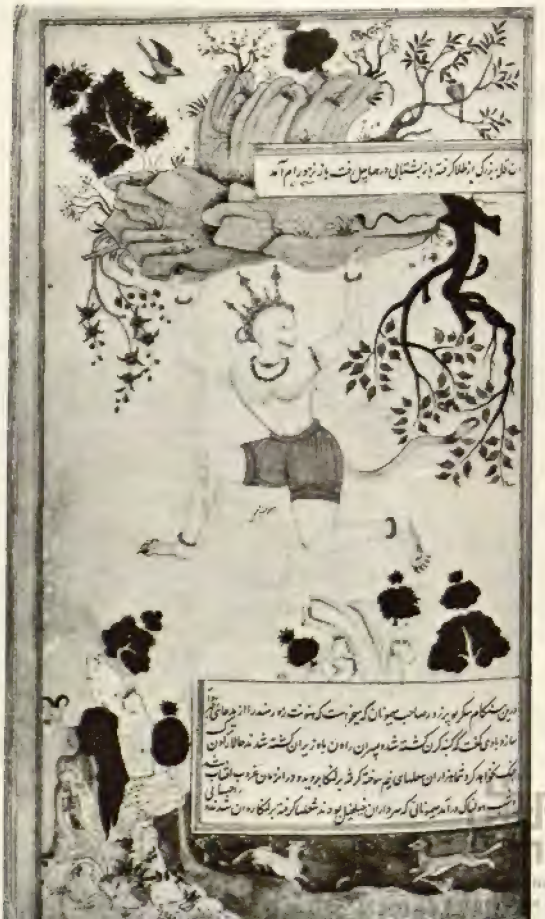 بزرگی از طلا گرفته باز بشتابی در هماچل رفت باز نزد رام آمد
درین هنگام سکریو بزور صاحب میمونان که میخواست که هنونت زور مند را از مدعای
سازد باوی گفت که کنبه کرن کشته شده پسران راون باو زیران کشته شدند حالا راون
جنک نخواهد کرد شما هزاران مشعلهای نیم سوخته گرفته بر لنکا بروید و در آن زمان غروب آفتاب
شب هولناک در آمد میمونانی که سرداران خیلخیل بودند شعلها گرفته بر لنکا روان شدند